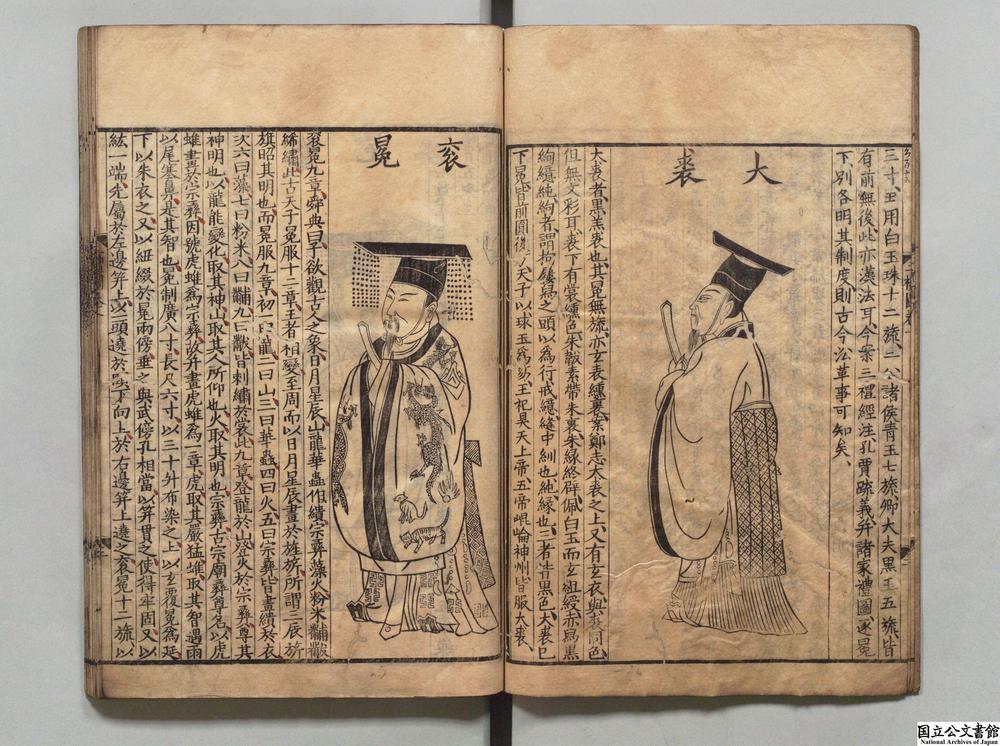 三寸、王用白玉珠十二旒、三公諸侯青玉七旒、卿大夫黑玉五旒、皆
有前無後此亦漢法耳今案三禮經注孔賈疏義并諸家禮圖、逐冕
下、別各明其制度則古今沿革事可知矣、
大裘
大裘者黑羔裘也其冕無旒、亦玄表纁裏案鄭志大裘之上又有玄衣、與裘同色
但無文彩耳裘下有裳纁色朱韍素帶朱裏朱緣終辟佩白玉而玄組綬赤舄黑
絇繶純絇者謂拘屨舄之頭以爲行戒繶縫中紃也純緣也三者皆黑色大裘已
下冕皆前圓後方天子以球玉爲笏王祀昊天上帝五帝崐崘神州皆服大裘、
衮冕
衮冕九章舜典曰予欲觀古人之象日月星辰山龍華蟲作繢宗彝藻火粉米黼黻
絺繡此古天子冕服十二章王者相變至周而以日月星辰畫於旌旂所謂三辰旂
旗昭其明也而冕服九章初一曰龍二曰山三曰華蟲四曰火五曰宗彝皆畫繢於衣
次六曰藻七曰粉米八曰黼九曰黻皆刺繡於裳此九章登龍於山登火於宗彝尊其
神明也以龍能變化取其神山取其人所仰也火取其明也宗彝古宗廟彝尊名以虎
蜼畫於宗彝因號虎蜼爲宗彝故并畫虎蜼爲一章虎取其嚴猛蜼取其智遇雨
以尾塞鼻是其智也冕制廣八寸長尺六寸以三十升布染之上以玄覆冕爲延
下以朱衣之又以紐綴於冕兩傍垂之與武傍孔相當以笄貫之使得牢固又以
紘一端先屬於左邊笄上以一頭遶於頤下向上於右邊笄上遶之衮冕十二旒以
国立公文書館
National Archives of Japan